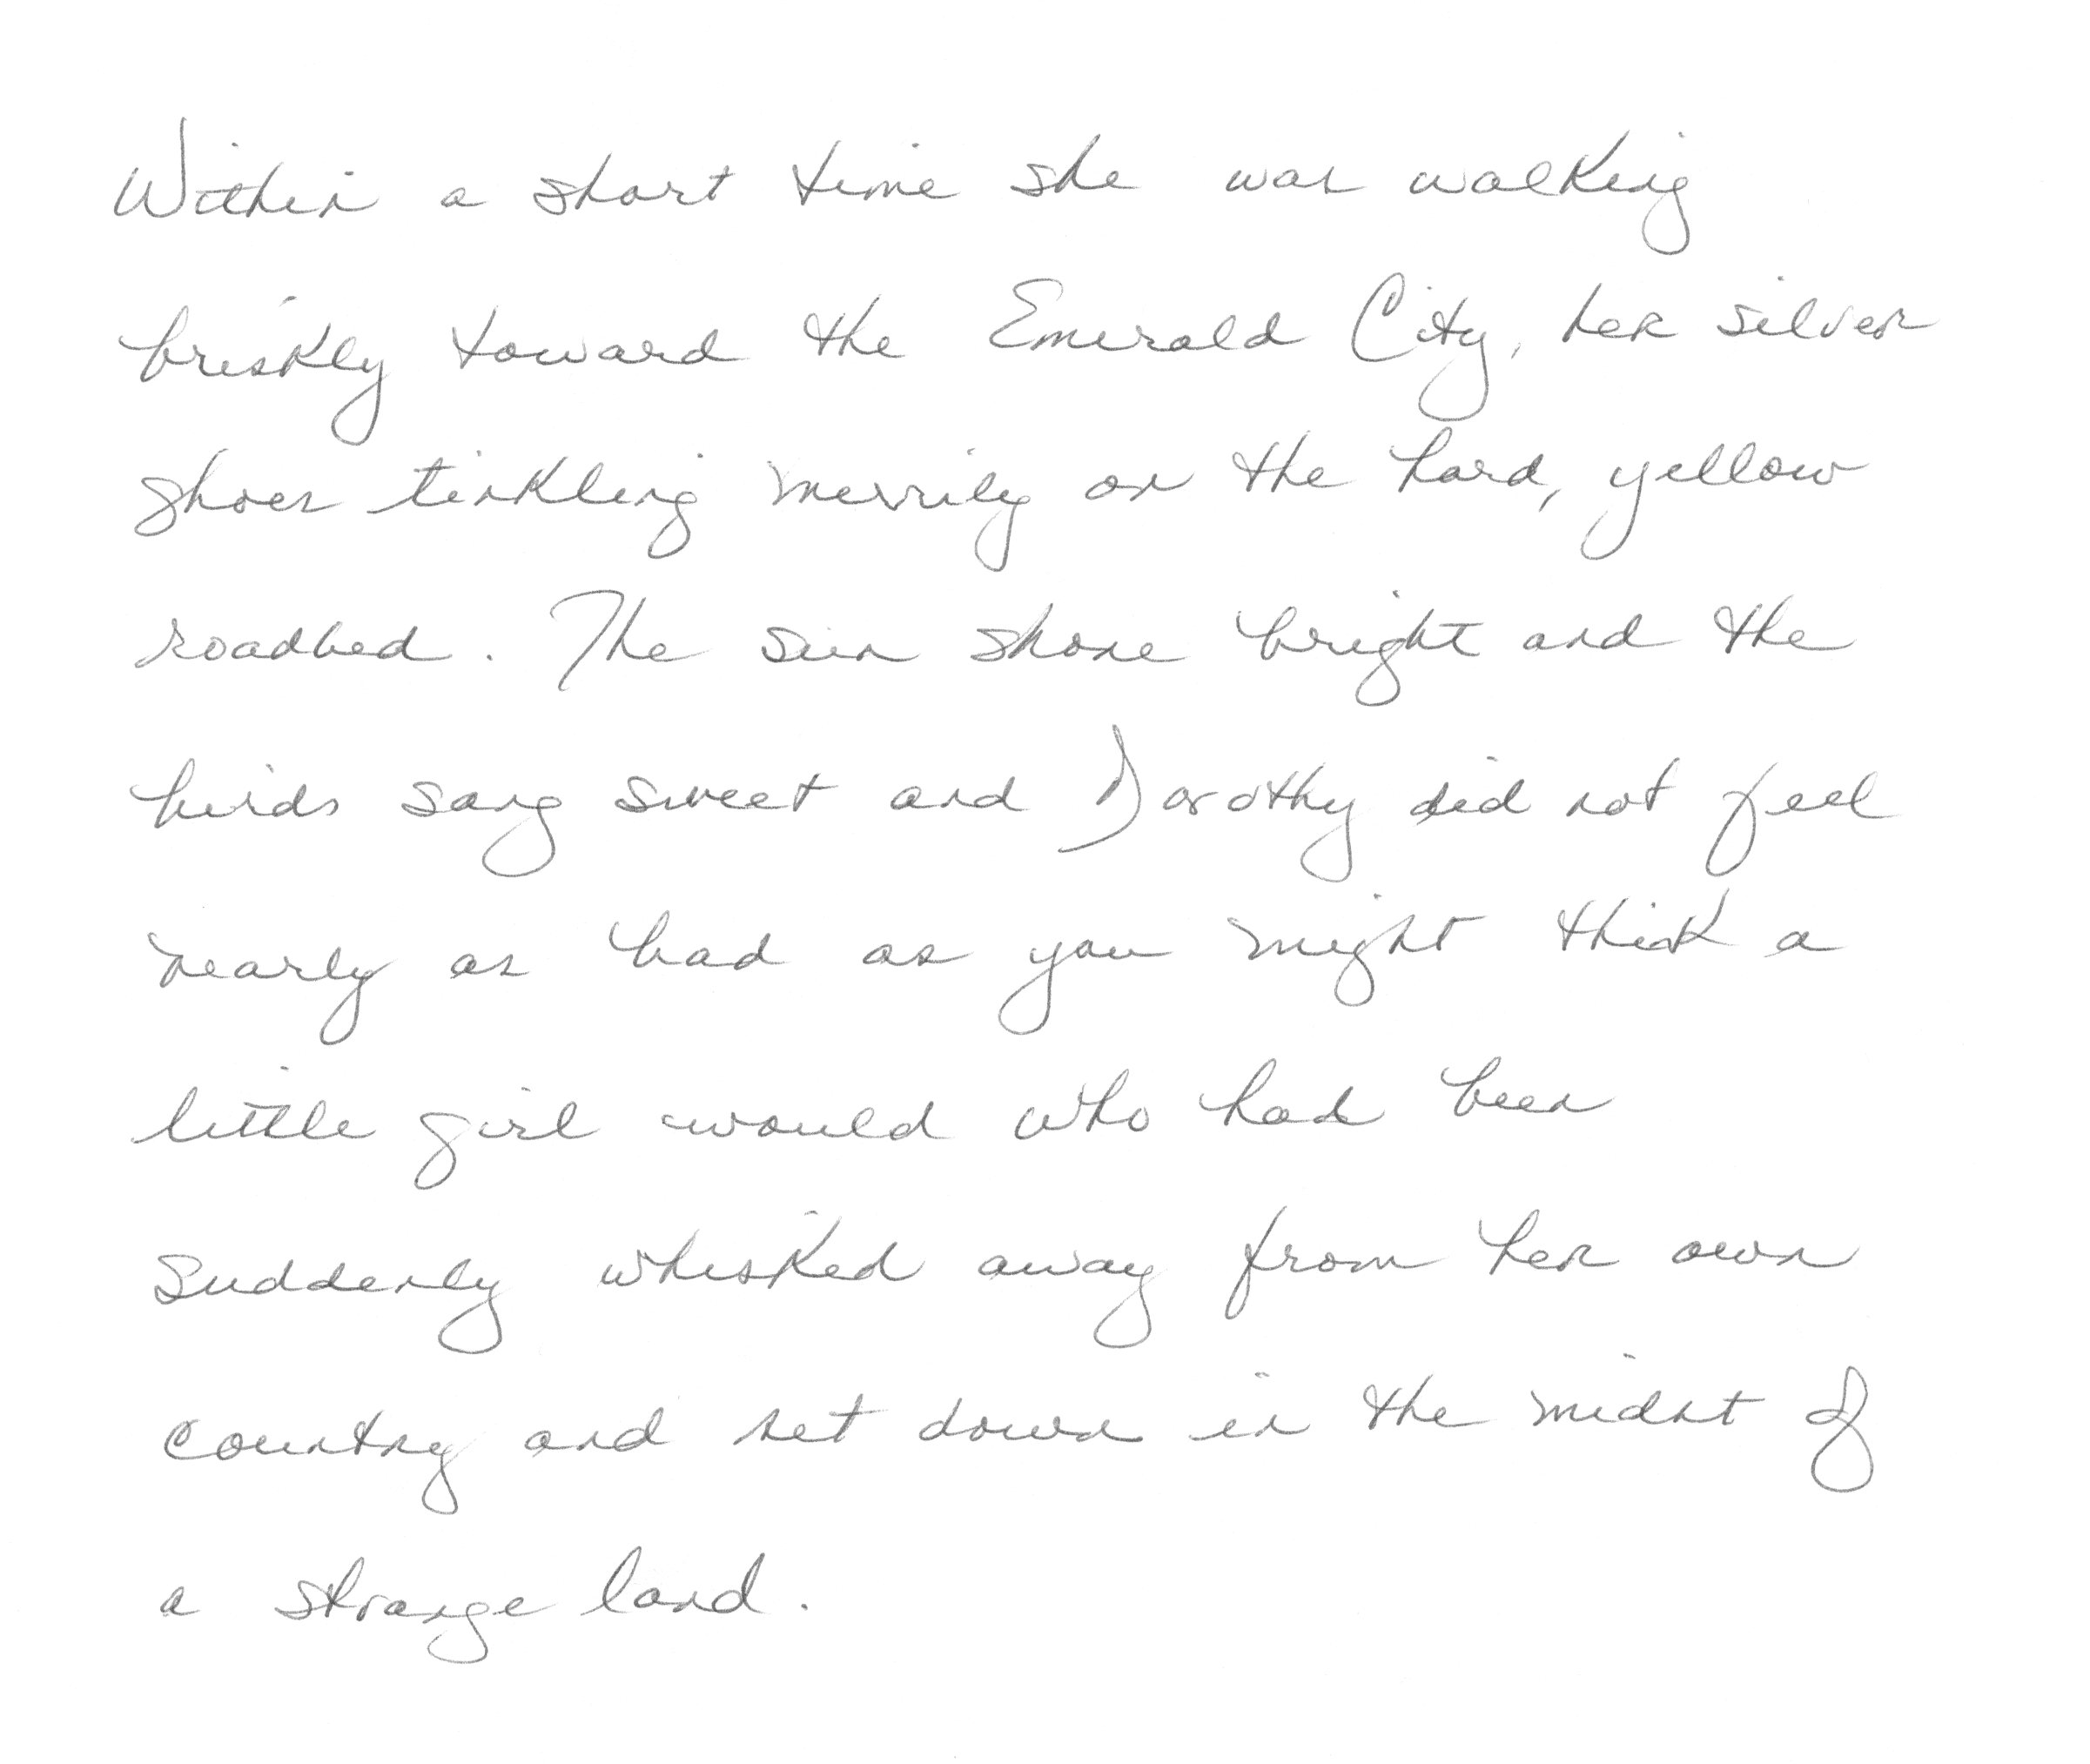 Within a short time she was walking
briskly toward the Emerald City, her silver
shoes tinkling merrily on the hard, yellow
roadbed. The sun shone bright and the
birds sang sweet and Dorothy did not feel
nearly as bad as you might think a
little girl would who had been
suddenly whisked away from her own
country and set down in the midst of
a strange land.